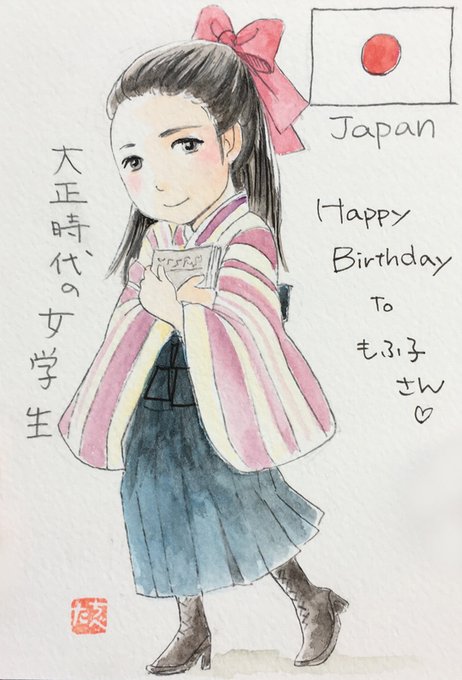 Japan
大正時代の女学生
Happy
Birthday
To
もふ子
さん♡